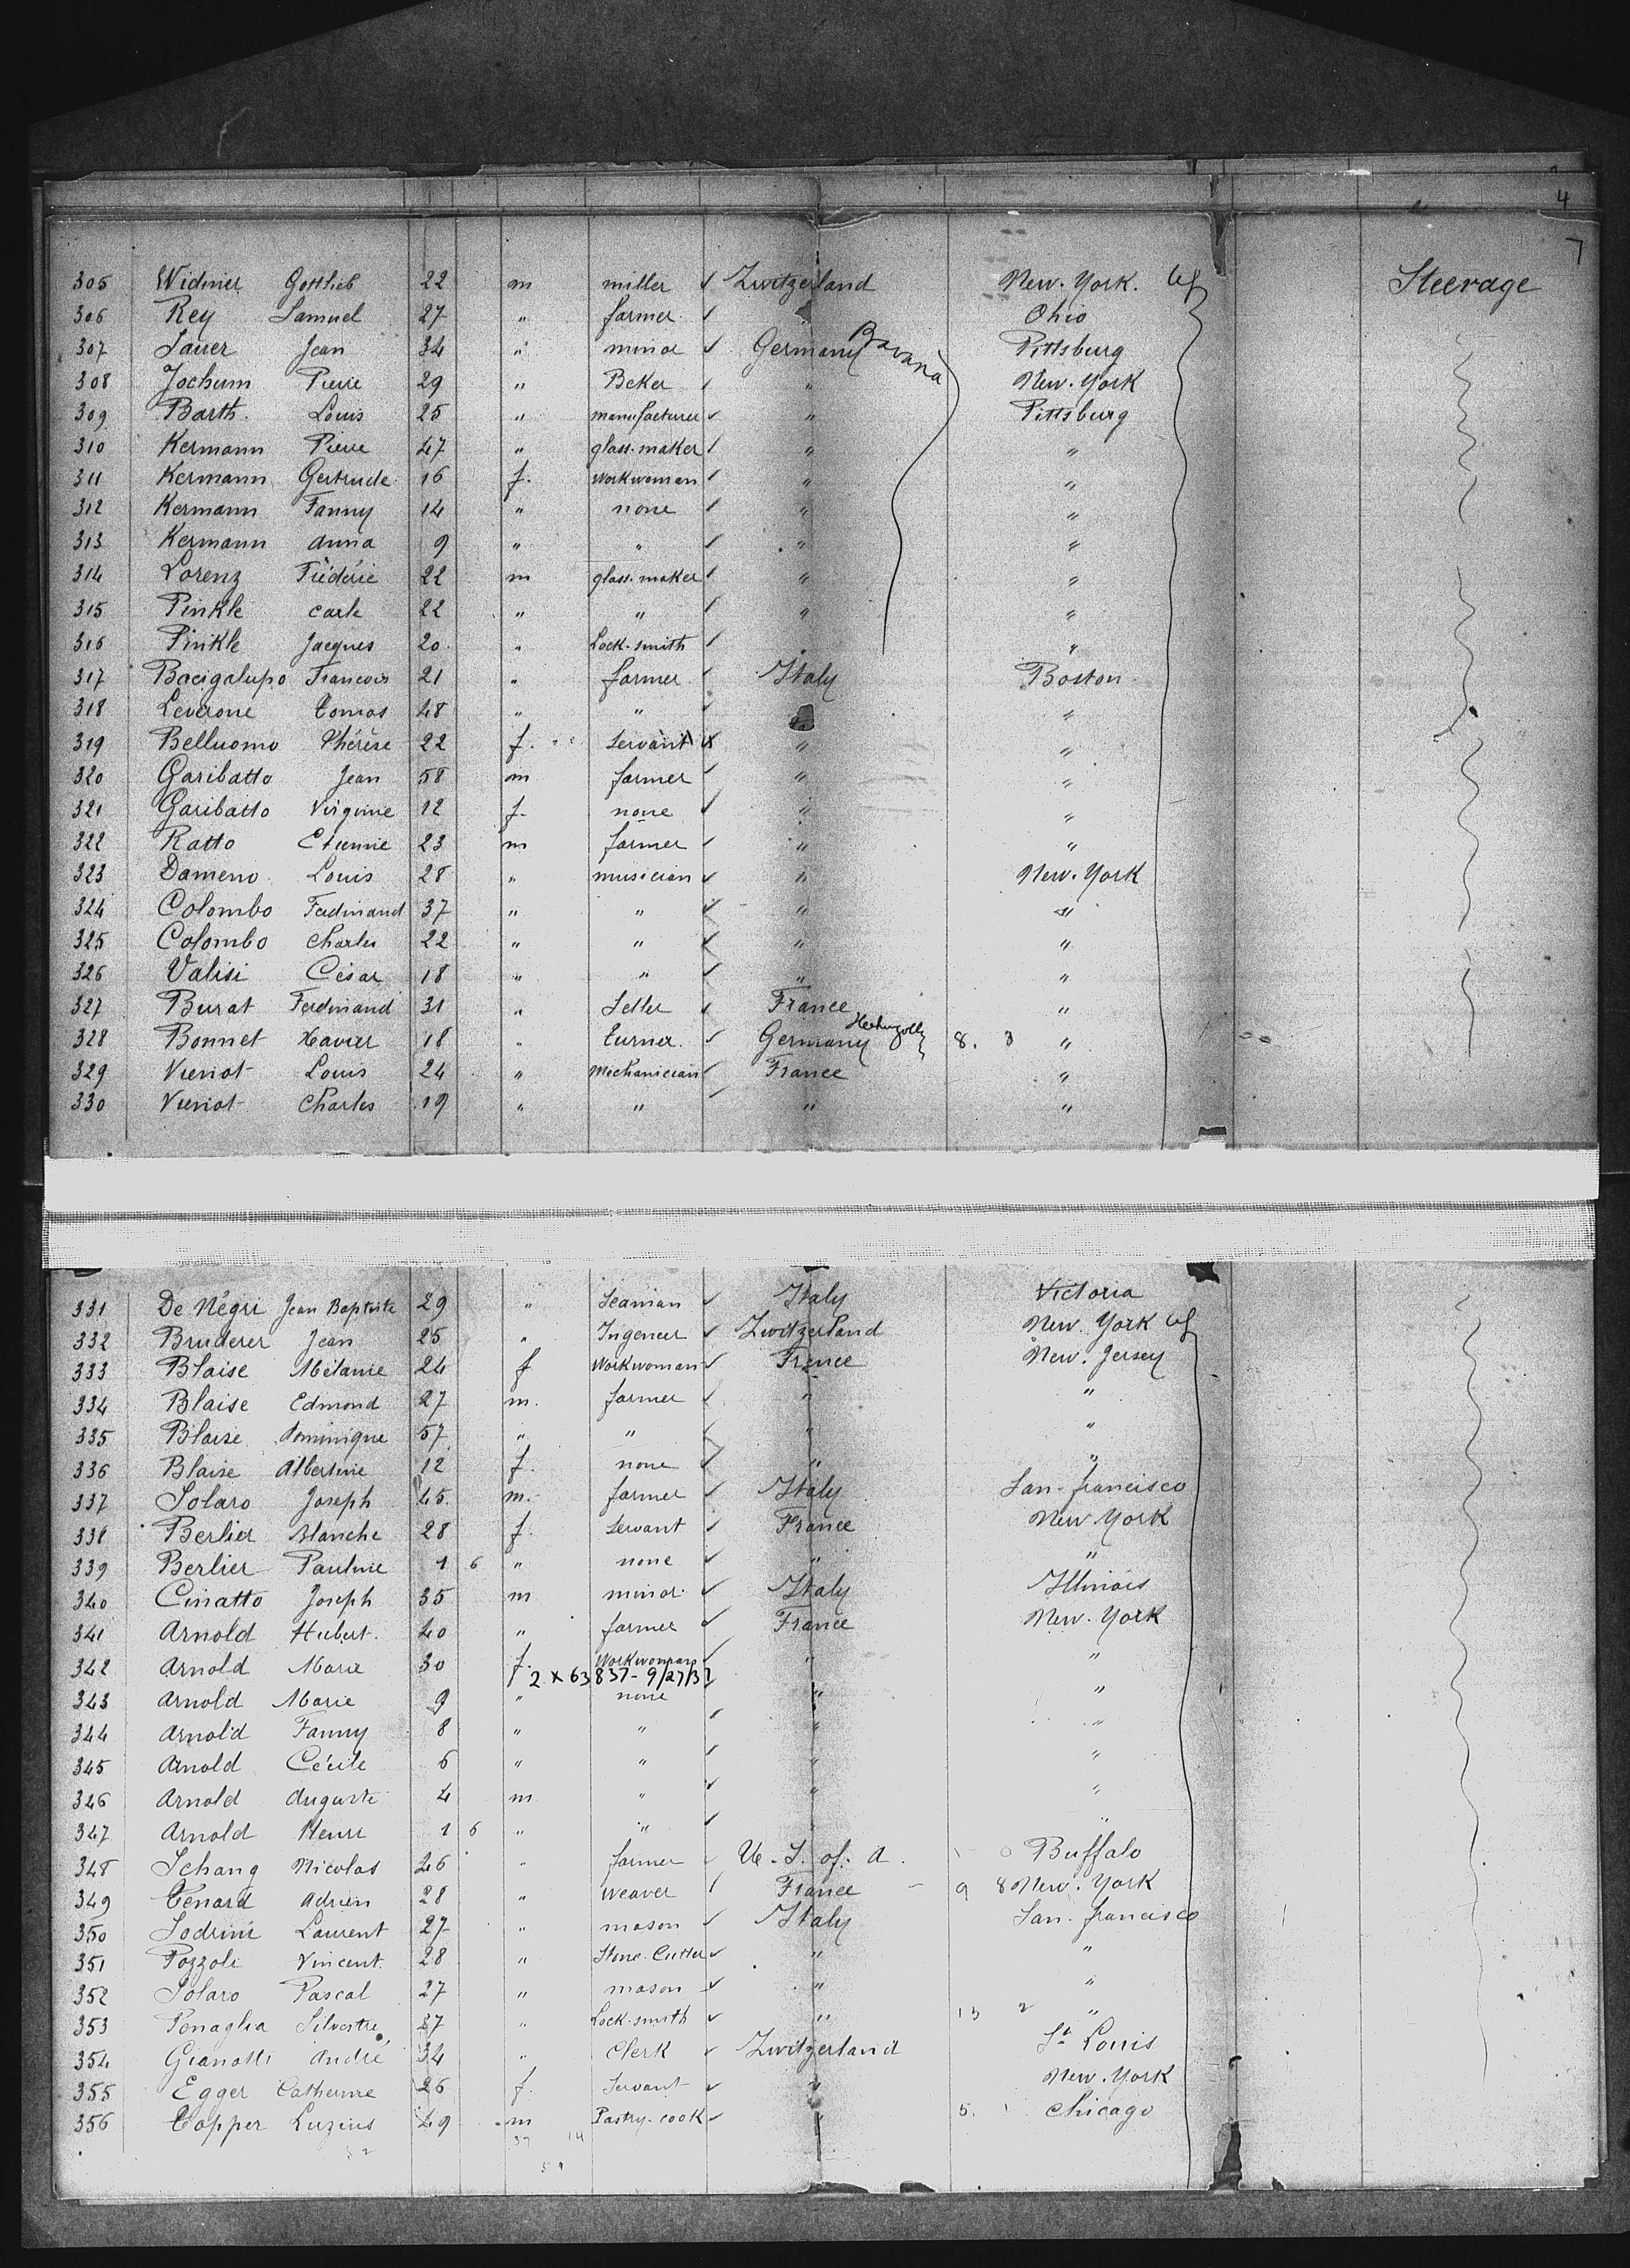 4
7
305 Widmer Gottlieb 22 m miller ✓ Zwitzerland New. York. Steerage
306 Rey Samuel 27 " farmer ✓ Ohio
307 Sauer Jean 34 " minor ✓ Germany Bavaria Pittsburg
308 Jochum Pierre 29 " Beker ✓ " New. York
309 Barth. Louis 25 " manufacturer ✓ " Pittsburg
310 Kermann Pierre 47 " glass. maker ✓ " "
311 Kermann Gertrude 16 f. Workwoman ✓ " "
312 Kermann Fanny 14 " none ✓ " "
313 Kermann Anna 9 " " ✓ " "
314 Lorenz Fréderic 22 m glass. maker ✓ " "
315 Pinkle Carle 22 " " ✓ " "
316 Pinkle Jacques 20 " Lock. smith ✓ " "
317 Bacigalupo Francois 21 " farmer ✓ Italy Boston
318 Leverone Tomas 48 " " ✓ "
319 Belluomo Thérèse 22 f. Servant X " "
320 Garibatto Jean 58 m farmer ✓ " "
321 Garibatto Virginie 12 f. none ✓ " "
322 Ratto Etienne 23 m farmer ✓ " "
323 Dameno Louis 28 " musician ✓ " New. York
324 Colombo Ferdinand 37 " " ✓ " "
325 Colombo Charles 22 " " ✓ " "
326 Valisi César 18 " " ✓ " "
327 Burat Ferdinand 31 " Seller ✓ France "
328 Bonnet Xavier 18 " turner. ✓ Germany 8. 3 "
329 Vienot Louis 24 " Mechanician ✓ France "
330 Vienot Charles 19 " " ✓ " "
331 De Négri Jean Baptiste 29 " Seaman ✓ Italy Victoria
332 Bruderer Jean 25 " Ingeneer ✓ Zwitzerland New York
333 Blaise Mélanie 24 f Workwoman ✓ France New. Jersey
334 Blaise Edmond 27 m. farmer ✓ " "
335 Blaise Dominique 57 " " ✓ " "
336 Blaise Albertine 12 f. none ✓ " "
337 Solaro Joseph 45 m. farmer ✓ Italy San-francisco
338 Berlier Blanche 28 f. Servant ✓ France New York
339 Berlier Pauline 1 6 " none ✓ " "
340 Cinatto Joseph 35 m minor ✓ Italy Illinois
341 Arnold Hubert. 40 " farmer ✓ France New. York
342 Arnold Marie 30 f. Workwoman ✓ " "
2 X 63837 - 9/27/37
343 Arnold Marie 9 " none ✓ " "
344 Arnold Fanny 8 " " ✓ " "
345 Arnold Cécile 6 " " ✓ " "
346 Arnold Auguste 4 m " ✓ " "
347 Arnold Henri 1 6 " " ✓ "
348 Schang Nicolas 26 " farmer ✓ U. S. of. A. Buffalo
349 Tenard Adrien 28 " Weaver ✓ France 9 8 New. York
350 Sodrini Laurent 27 " mason ✓ Italy San. francisco
351 Pozzoli Vincent 28 " Stone. Cutter ✓ " "
352 Solaro Pascal 27 " mason ✓ " "
353 Penaglia Silvestre 27 " Lock-smith ✓ " 13 2 "
354 Gianotti André 34 " Clerk ✓ Zwitzerland St. Louis
355 Egger Catherine 26 f. Servant ✓ " New. York
356 Topper Luzius 49 m Pastry-cook ✓ " 5. 1 Chicago
37 14